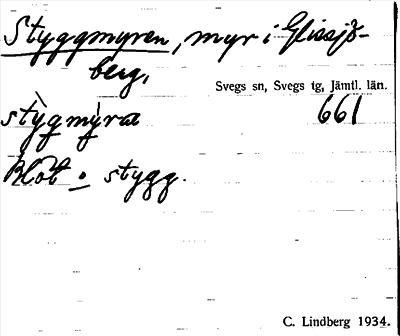 Styggmyren, myr i Glissjö-
berg,
Svegs sn, Svegs tg, Jämtl. län.
stỳgmỳra 661
Blöt o stygg.
C. Lindberg 1934.